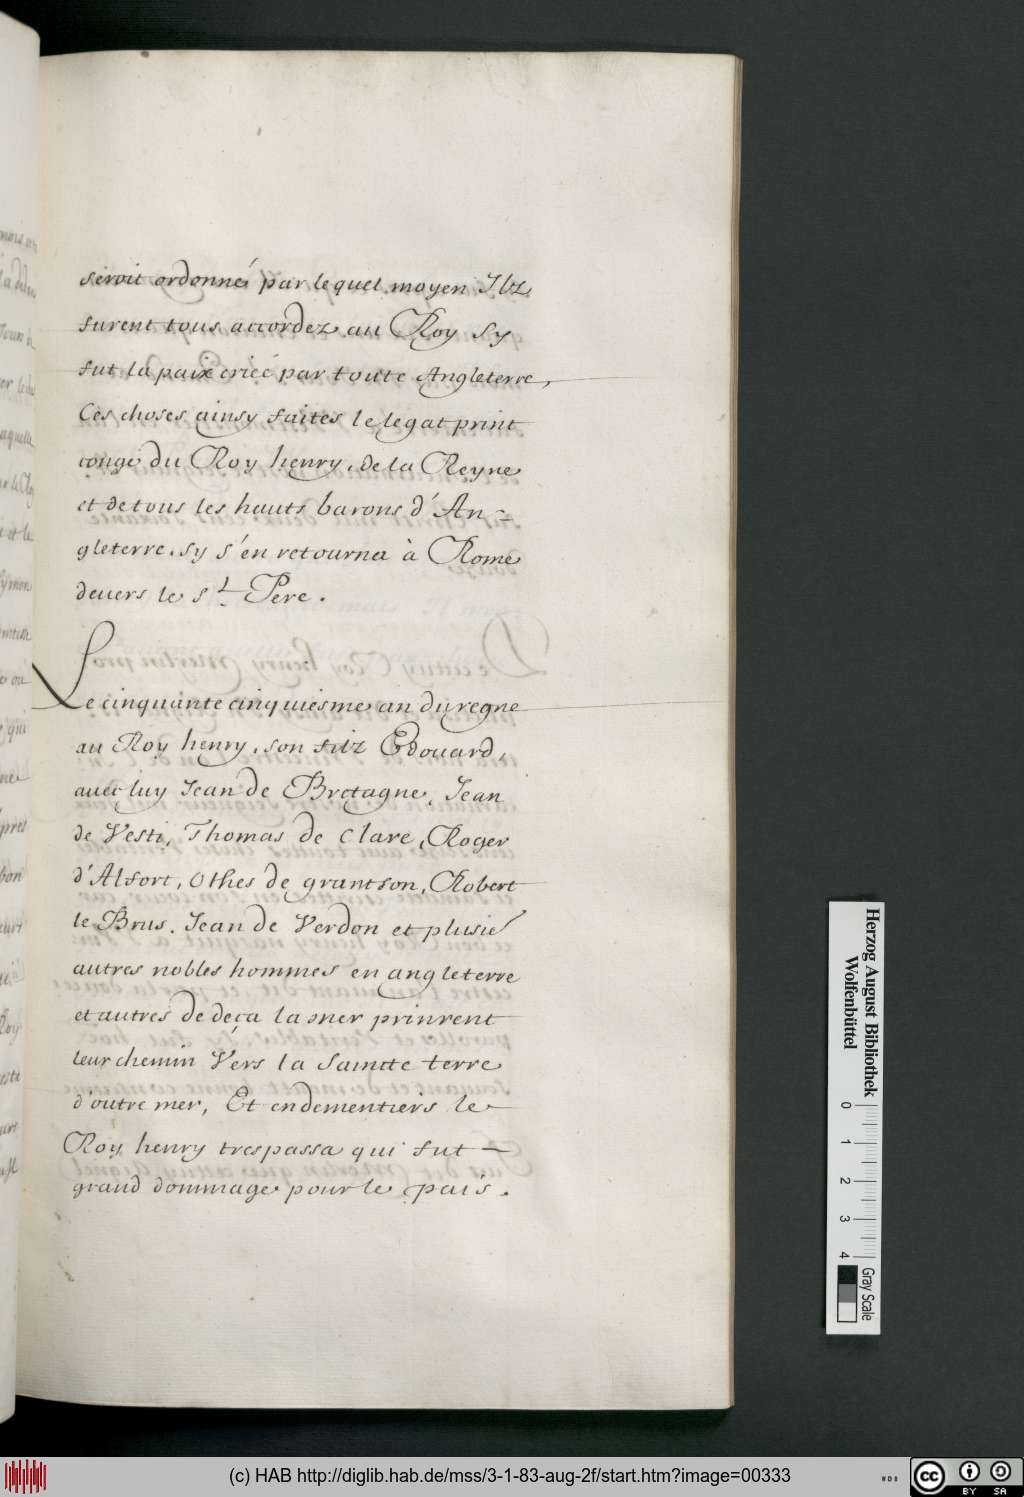 seroit ordonné par lequel moyen Ilz
furent tous accordez au Roy Sy
fut la paix criée par toute Angleterre,
Ces choses ainsy faites le legat print
congé du Roy henry, de la Reyne
et de tous les hauts barons d'An-
gleterre. sy s'en retourna à Rome
devers le St. Pere.
Le cinquante cinquiesme an du regne
au Roy henry, son filz Edouard,
avec luy Jean de Bretagne, Jean
de Vesti, Thomas de Clare, Roger
d'Alfort, Othes de grantson, Robert
le Brus. Jean de Verdon et plusie
autres nobles hommes en angleterre
et autres de deça la mer prinrent
leur chemin Vers la Saincte terre
d'outre mer, Et endementiers le
Roy henry trespassa qui fut
grand dommage pour le païs.
Herzog August Bibliothek
Wolfenbüttel
0 1 2 3 4
Gray Scale
(c) HAB http://diglib.hab.de/mss/3-1-83-aug-2f/start.htm?image=00333
cc BY SA